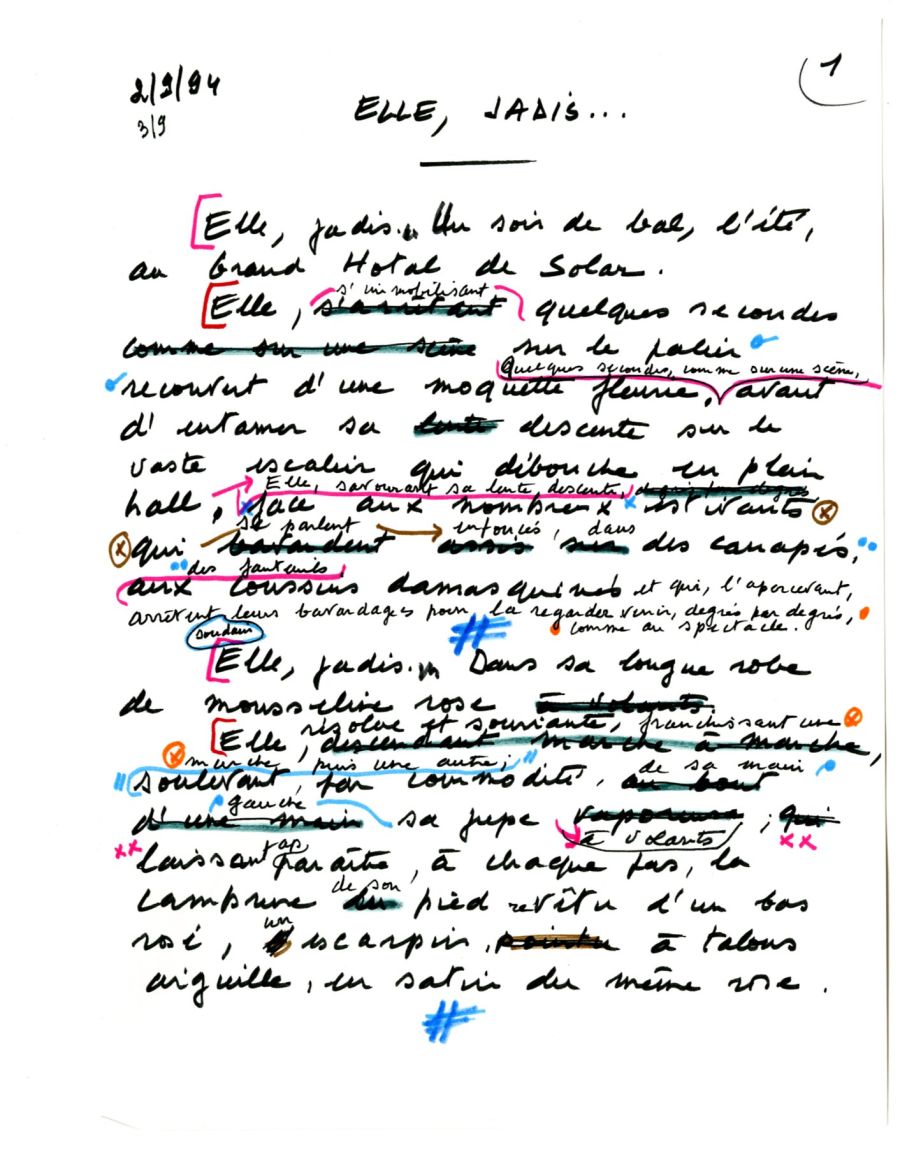 2/9/94
3/9
1
ELLE, JADIS...
Elle, jadis... Un soir de bal, l'été,
au Grand Hotal de Solar.
s'immobilisant
Elle, s'arrêtant quelques secondes
comme sur une scène sur le palier
quelques secondes, comme sur une scène,
recouvert d'une moquette fleurie, avant
d'entamer sa lente descente sur le
vaste escalier qui débouche en plein
Elle, savourant sa lente descente,
hall, face aux nombreux estivants
se parlent enfoncés, dans
qui bavardent assis sur des canapés,
des fauteuils
aux coussins damasquinés et qui, l'apercevant,
arrêtent leurs bavardages pour la regarder venir, degrés par degrés,
comme au spectacle.
soudain
Elle, jadis... Dans sa longue robe
de mousseline rose à volants.
résolue et souriante, franchissant une
Elle, descendant marche à marche,
marche, puis une autre,
soulevant, par commodité, au bout
de sa main
gauche
d'une main sa jupe vaporeuse, qui
à volants
laissant apparaître, à chaque pas, la
de son
cambrure du pied revêtu d'un bas
un
rosé, escarpin pointu à talons
aiguille, en satin du même rose.